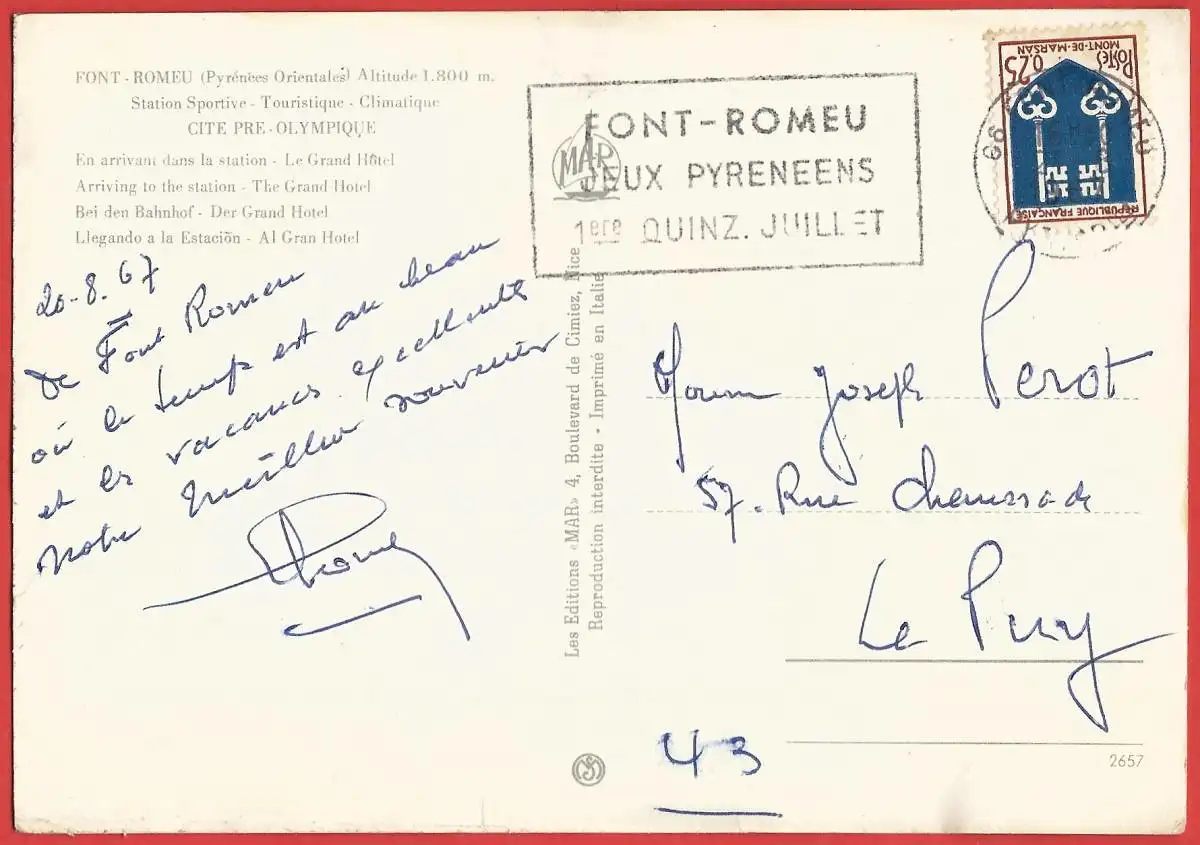 FONT - ROMEU (Pyrénées Orientales) Altitude 1.800 m.
Station Sportive - Touristique - Climatique
CITE PRE-OLYMPIQUE
En arrivant dans la station - Le Grand Hôtel
Arriving to the station - The Grand Hotel
Bei den Bahnhof - Der Grand Hotel
Llegando a la Estación - Al Gran Hotel
20-8.67
De Font Romeu
où le temps est au beau
et les vacances excellentes
notre meilleur souvenir
Les Editions «MAR» 4, Boulevard de Cimiez, Nice
Reproduction interdite - Imprimé en Italie
MAR
FONT-ROMEU
JEUX PYRENEENS
1ere QUINZ. JUILLET
66
MEU
RÉPUBLIQUE FRANÇAISE
0,25
POSTES
MONT-DE-MARSAN
Joseph Perot
57. Rue
Le Puy
43
2657